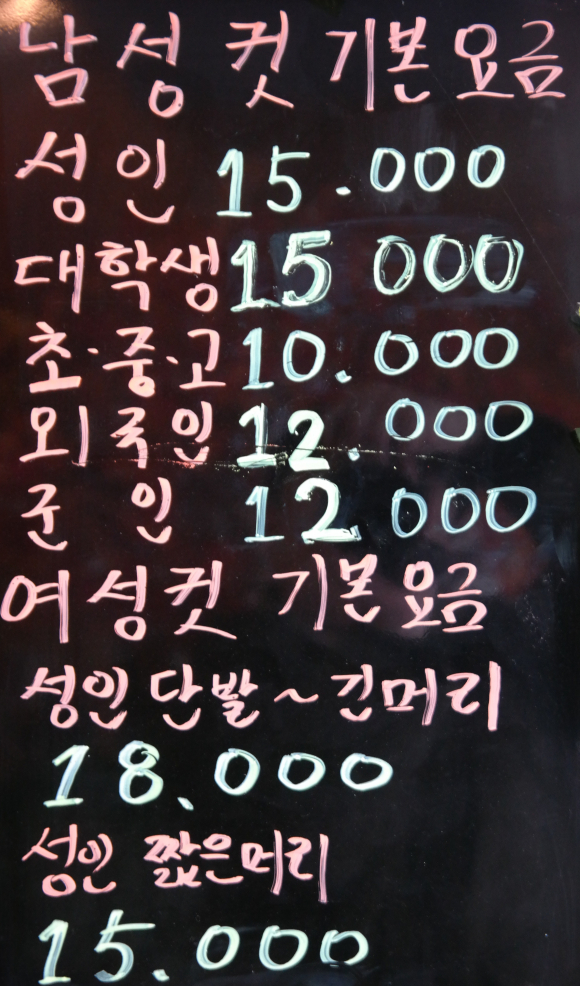 남성 컷 기본요금
성인 15.000
대학생 15 000
초·중·고 10.000
외국인 12.000
군인 12 000
여성컷 기본요금
성인 단발~긴머리
18.000
성인 짧은머리
15.000